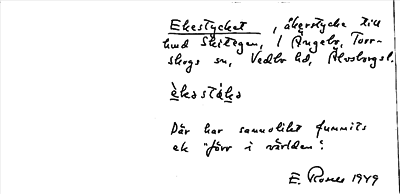 Ekestycket, åkerstycke till
hmd Skitegen, 1 Ängebo, Torr-
skogs sn, Vedbo hd, Älvsborgs l.
èkastáka
Där har sannolikt funnits
ek "förr i världen".
E. Rosell 1949